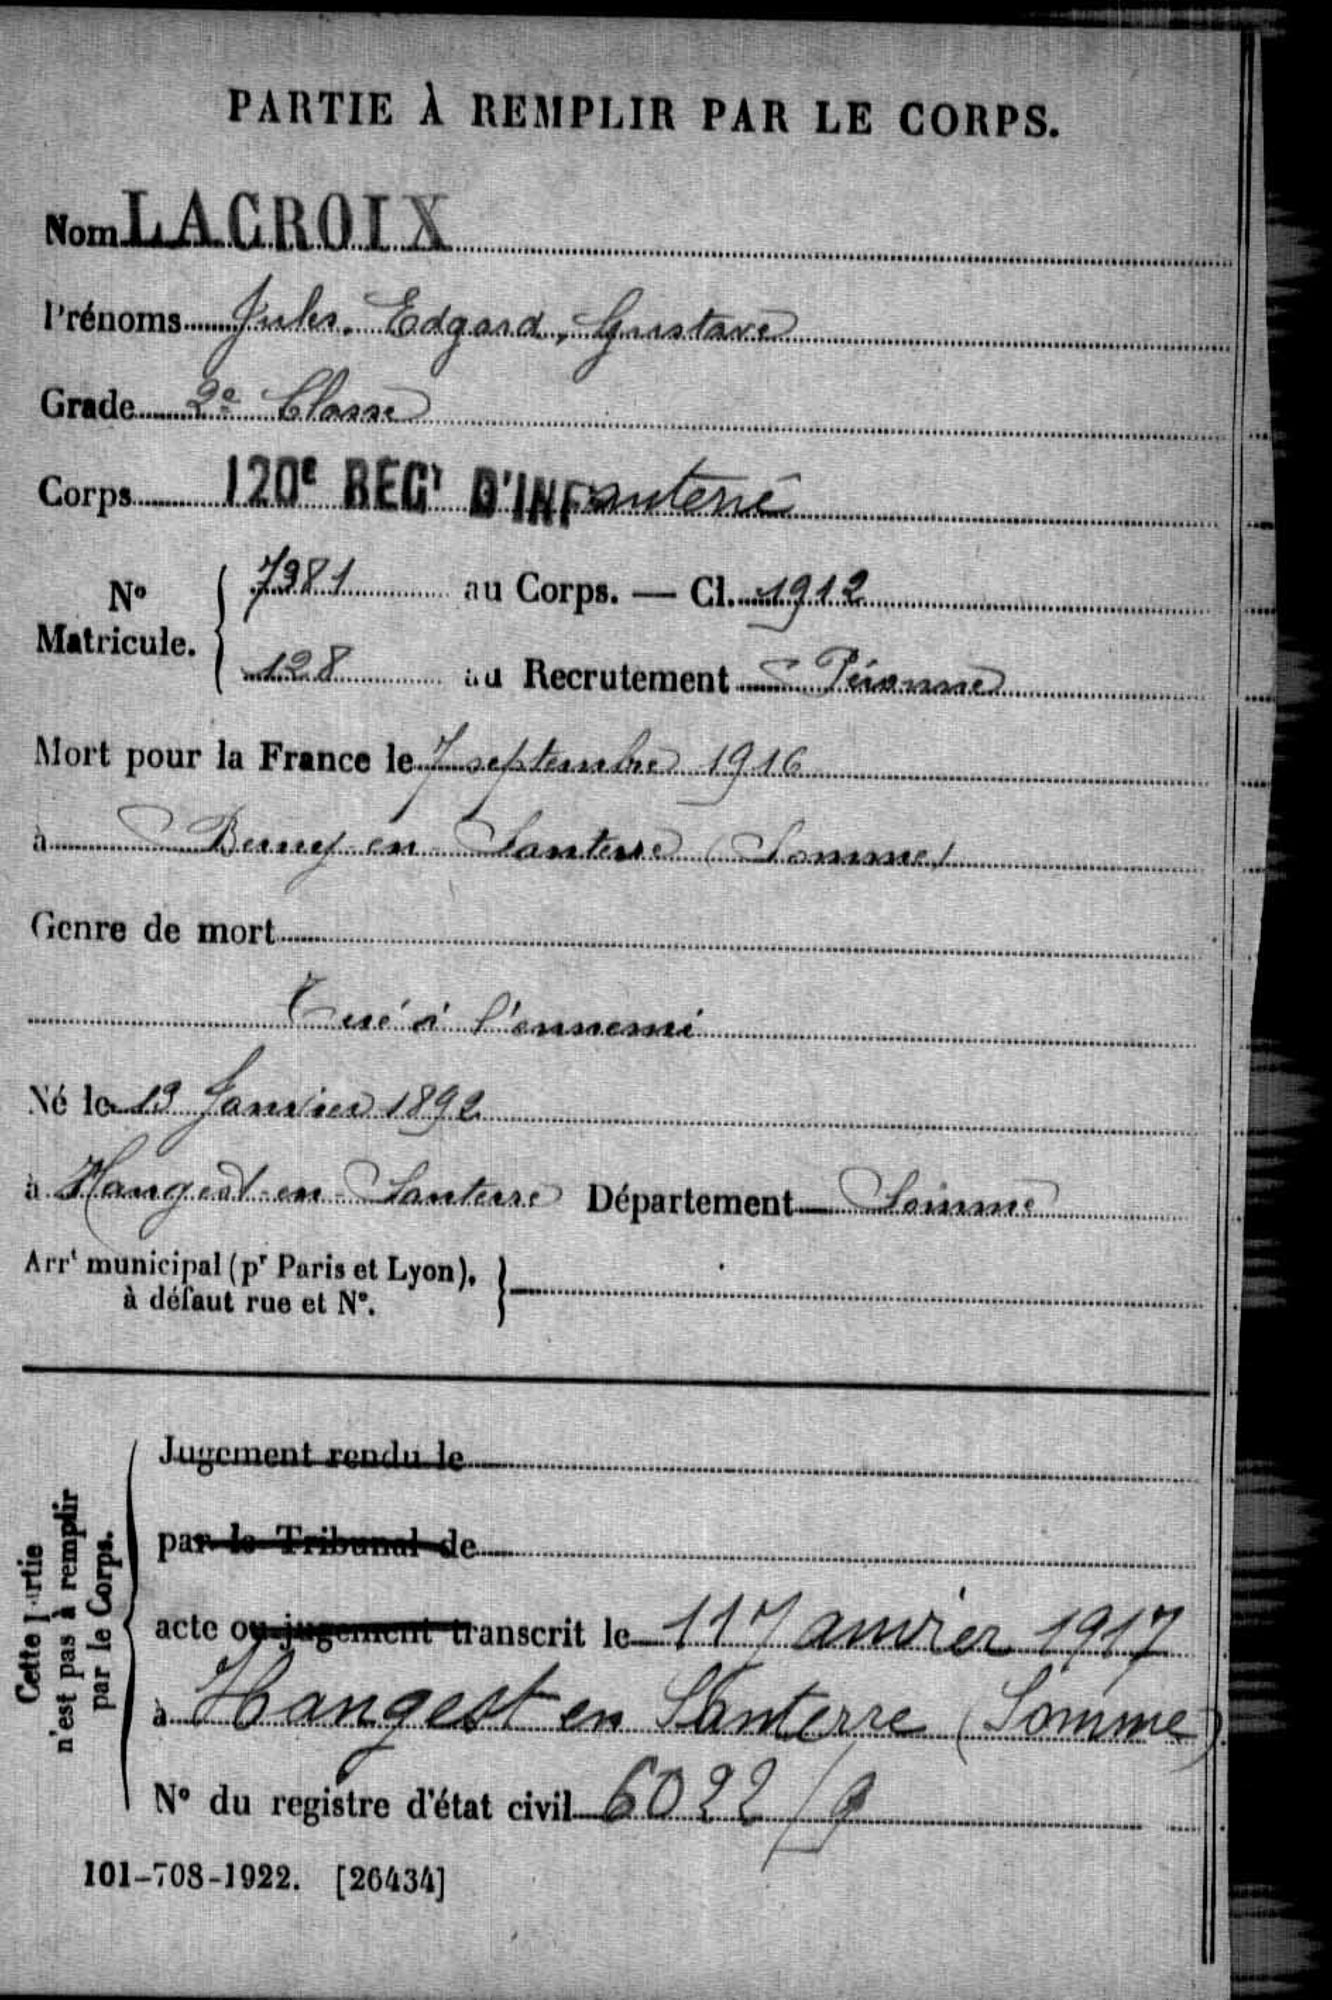 PARTIE À REMPLIR PAR LE CORPS.
Nom LACROIX
Prénoms Jules, Edgard, Gustave
Grade 2e Classe
Corps 120e REGt D'INFanterie
No Matricule. { 7381 au Corps. — Cl. 1912
128 au Recrutement Péronne
Mort pour la France le 7 septembre 1916
à Berny-en-Santerre (Somme)
Genre de mort
Tué à l'ennemi
Né le 13 Janvier 1892
à Hangest-en-Santerre Département Somme
Arrt municipal (pr Paris et Lyon), }
à défaut rue et No.
Cette Partie
n'est pas à remplir
par le Corps.
Jugement rendu le
par le Tribunal de
acte ou jugement transcrit le 11 Janvier 1917
à Hangest en Santerre (Somme)
No du registre d'état civil 6022/9
101-708-1922. [26434]